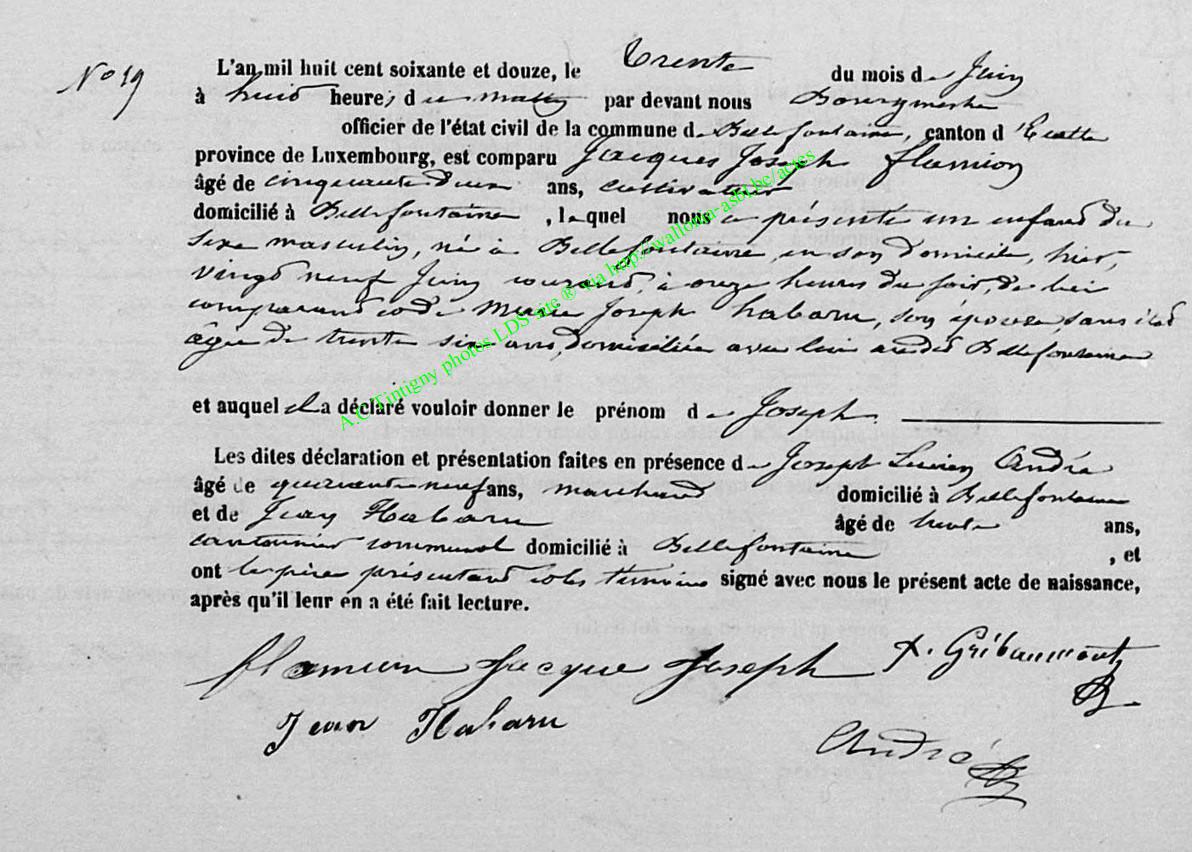 N° 19
L'an mil huit cent soixante et douze, le trente du mois de Juin
à huit heures du matin par devant nous Bourgmestre
officier de l'état civil de la commune de Bellefontaine, canton d'Etalle
province de Luxembourg, est comparu Jacques Joseph flamion
âgé de cinquante deux ans, cultivateur
domicilié à Bellefontaine, lequel nous a présenté un enfant du
sexe masculin, né à Bellefontaine, en son domicile, hier,
vingt neuf Juin courant, à onze heures du soir, de lui
comparant et de Marie Joseph habaru, son épouse, sans état
âgée de trente six ans, domiciliée avec lui audit Bellefontaine
et auquel il a déclaré vouloir donner le prénom de Joseph.
Les dites déclaration et présentation faites en présence de Joseph Lucien André
âgé de quarante neuf ans, marchand domicilié à Bellefontaine
et de Jean Habaru âgé de trente ans,
cantonnier communal domicilié à Bellefontaine, et
ont les père présentant et les témoins signé avec nous le présent acte de naissance,
après qu'il leur en a été fait lecture.
flamion Jacque Joseph X. Gribaumont
Jean Habaru
André
A.C Tintigny photos LDS site ® via http://wallonia-asbl.be/actes